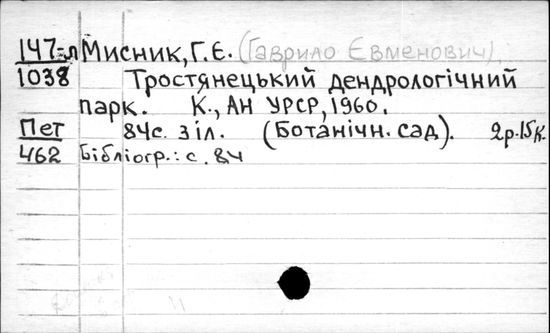 147-л Мисник, Г.Є. (Гаврило Євменович).
1038 Тростянецький дендрологічний
парк. К., АН УРСР, 1960.
Пет 84с. з іл. (Ботанічн. сад). 2р.15к.
462 Бібліогр.: с. 84